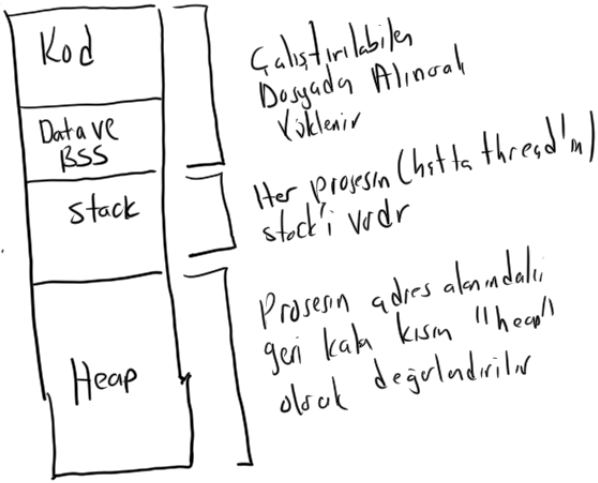 Kod
Data ve
BSS
Stack
Heap
Çalıştırılabilen
Dosyada Alınarak
Yüklenir
Her prosesin (hatta thread'in)
stack'i vardır
Prosesin adres alanındaki
geri kalan kısım "heap"
olarak değerlendirilir